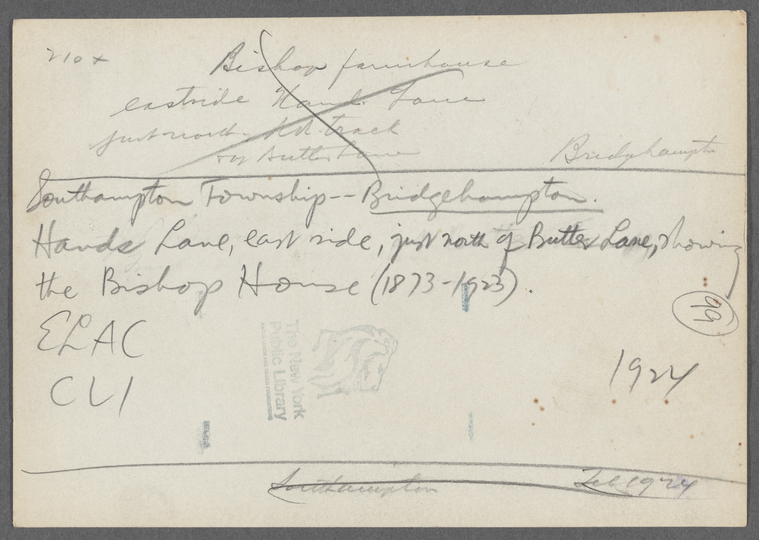 210x
Bishop farmhouse
eastside Hands Lane
just north RR. track
Butter Lane
Bridgehampton
Southampton Township--Bridgehampton.
Hands Lane, east side, just north of Butter Lane, showing
the Bishop House (1873-1923).
99
ELAC
CLI
1924
The New York
Public Library
Southampton
Feb 1924